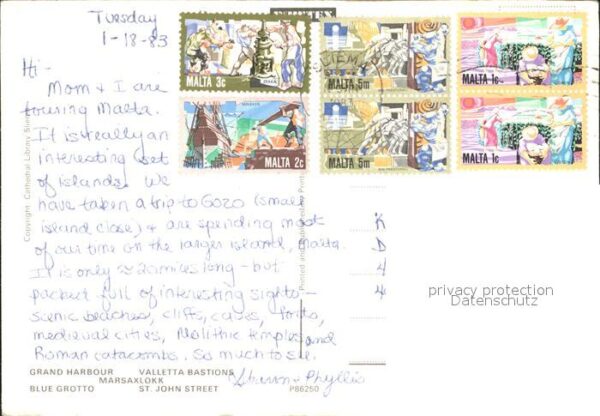 Tuesday
1-18-83
Hi -
Mom & I are
touring Malta.
It is really an
interesting set
of islands. We
have taken a trip to Gozo (small
island close) & are spending most
of our time on the larger island, Malta.
It is only ≈ 20 miles long - but
packed full of interesting sights -
scenic beaches, cliffs, caves, forts,
medieval cities, Neolithic temples and
Roman catacombs. So much to see.
Sharon & Phyllis
MALTA 3c
MALTA 5m
MALTA 1c
MALTA 2c
MALTA 5m
MALTA 1c
SLIEMA
Copyright. Cathedral Library
Printed and
K
D
4
4
privacy protection
Datenschutz
GRAND HARBOUR VALLETTA BASTIONS
MARSAXLOKK
BLUE GROTTO ST. JOHN STREET P86250